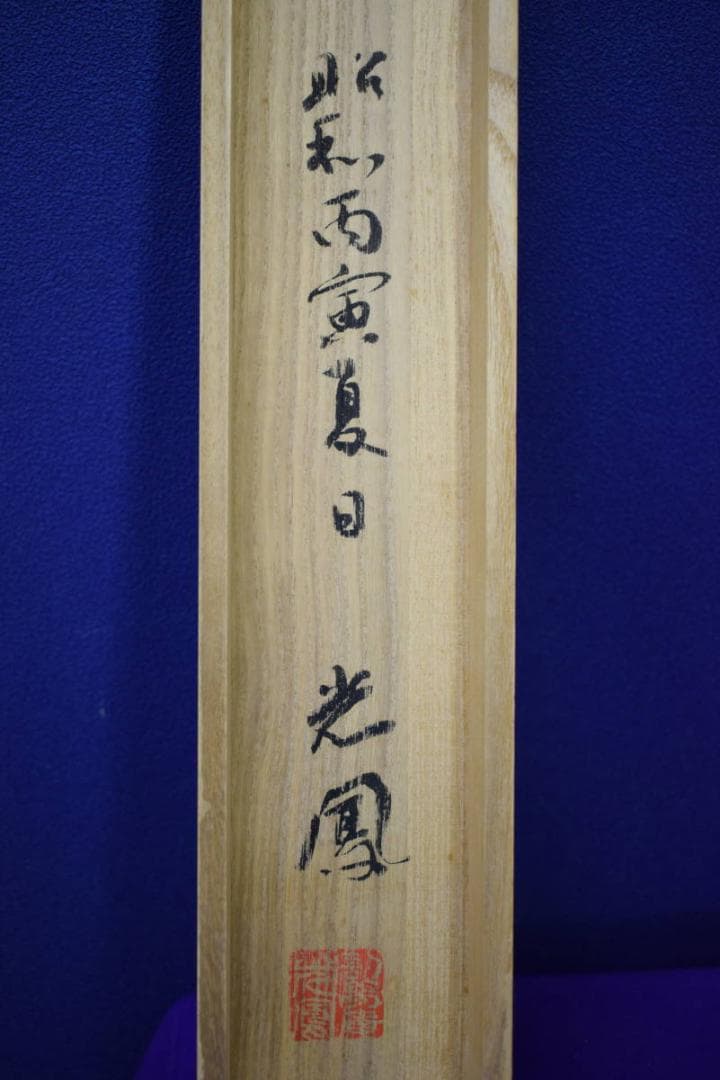 昭和丙寅夏日 光鳳